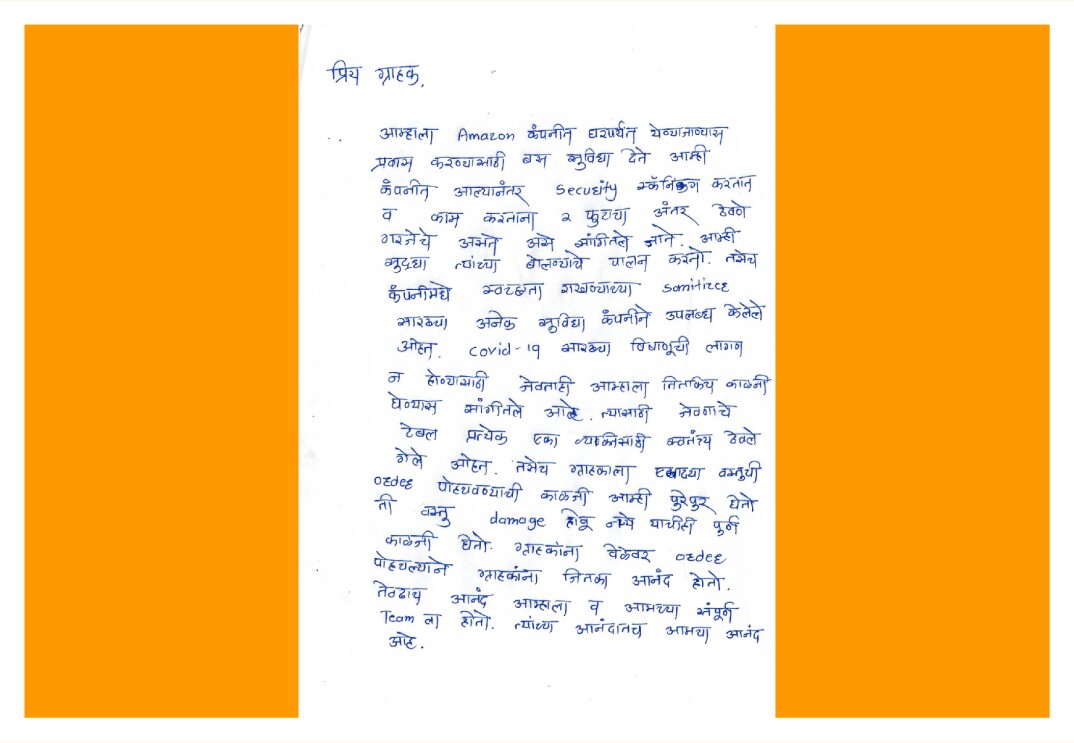 प्रिय ग्राहक,
आम्हाला Amazon कंपनीत घरपर्यंत येण्याजाण्यास
प्रवास करण्यासाठी बस सुविधा देते आम्ही
कंपनीत आल्यानंतर Security स्कॅनिंग करतात
व काम करताना २ फुटाचा अंतर ठेवणे
गरजेचे असते असे सांगितले जाते. आम्ही
सुद्धा त्यांच्या बोलण्याचे पालन करतो. तसेच
कंपनीमधे स्वच्छता राखण्याच्या Sanitizer
सारख्या अनेक सुविधा कंपनीने उपलब्ध केलेले
आहेत. covid-19 सारख्या विषाणूची लागण
न होण्यासाठी जेवताही आम्हाला तितकिच काळजी
घेण्यास सांगीतले आहे. त्यासाठी जेवणाचे
टेबल प्रत्येक एका व्यक्तिसाठी स्वतंत्र्य ठेवले
गेले आहेत. तसेच ग्राहकाला एखाद्या वस्तुची
order पोहचवण्याची काळजी आम्ही पुरेपुर घेतो
ती वस्तु damage होवू नये याचीही पुर्ण
काळजी घेतो. ग्राहकांना वेळेवर order
पोहचल्याने ग्राहकांना जितका आनंद होतो.
तेवढाच आनंद आम्हाला व आमच्या संपूर्ण
Team ला होतो. त्यांच्या आनंदातच आमचा आनंद
आहे.